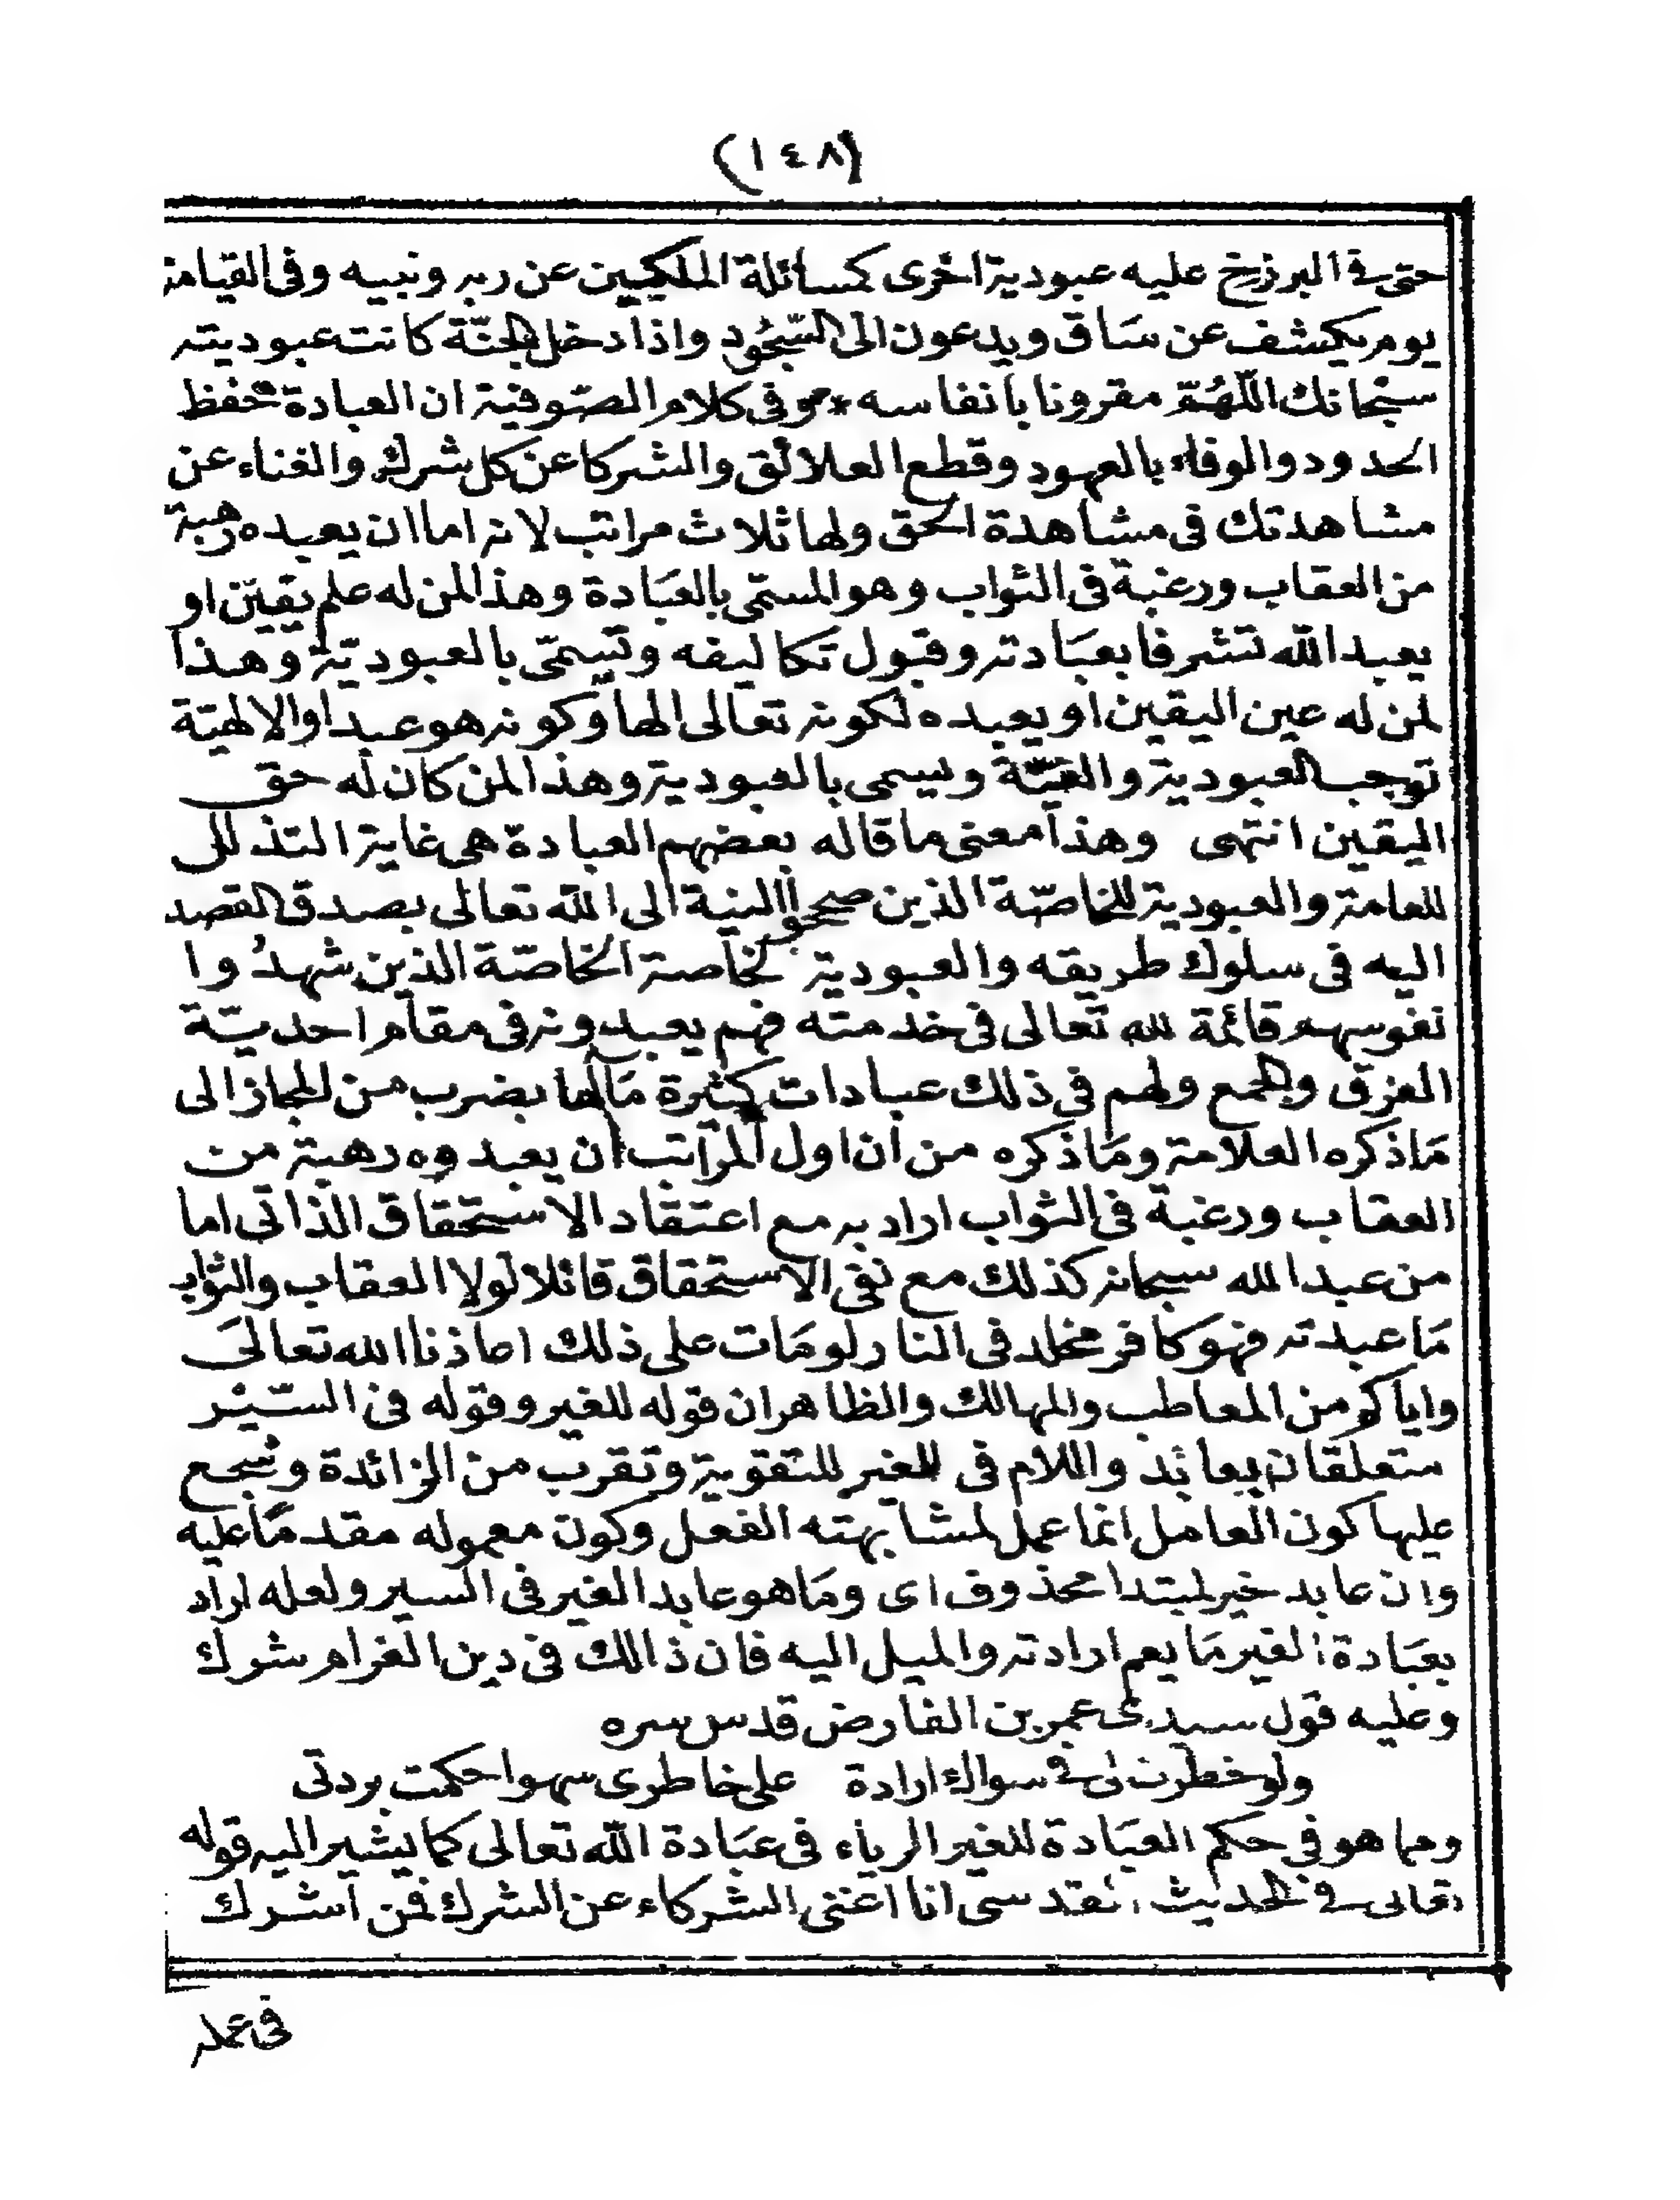 (١٤٨)
حتى في البرزخ عليه عبودية اخرى كمسائلة الملكين عن ربه ونبيه وفى القيامة
يوم يكشف عن سَاق ويدعون الى السّجُود واذا دخل الجنّة كانت عبوديته
سبحانك اللّهُمّ مقرونا بانفاسه * وفى كلام الصّوفية ان العبادة حفظ
الحدود والوفاء بالعهود وقطع العلائق والشركا عن كل شرك والغناء عن
مشاهدتك فى مشاهدة الحق ولها ثلاث مراتب لانه اما ان يعبده رهبة
من العقاب ورغبة فى الثواب وهو المسمّى بالعبَادة وهذا لمن له علم يقين او
يعبد الله تشرفا بعبَادته وقبول تكاليفه وتسمّى بالعبوديّة وهذا
لمن له عين اليقين او يعبده لكونه تعالى الها وكونه هو عبدا والالهيّة
توجب العبودية ويسمى بالعبودية وهذا لمن كان له حق
اليقين انتهى وهذا معنى ما قاله بعضهم العبادة هى غاية التذلل
للعامة والعبودية للخاصّة الذين صححوا النية الى الله تعالى بصدق القصد
اليه فى سلوك طريقه والعبودية لخاصة الخاصّة الذين شهدُوا
نفوسهم قائمة لله تعالى فى خدمته فهم يعبدونه فى مقام احديّة
الفرق والجمع ولهم فى ذلك عبادات كثيرة مَالها بضرب من المجاز الى
مَاذكره العلامة ومَاذكره من ان اول المراتب ان يعبدوه رهبة من
العقاب ورغبة فى الثواب اراد به مع اعتقاد الاستحقاق الذاتى اما
من عبد الله سبحانه كذلك مع نفى الاستحقاق قائلا لولا العقاب والثواب
مَا عبدته فهو كافر مخلد فى النار لو مَات على ذلك اعاذنا الله تعالىَ
واياكم من المعاطب والمهالك والظاهر ان قوله للغير وقوله فى السّيْر
متعلقان بعابد واللام فى للغير للتقوية وتقرب من الزائدة وشجع
عليها كون العامل انما عمل لمشابهته الفعل وكون معموله مقدمًا عليه
وان عابد خبر لمبتدا محذوف اى ومَا هو عابد الغير فى السير ولعله اراد
بعبَادة الغير مَا يعم ارادته والميل اليه فان ذالك فى دين الغرام شرك
وعليه قول سيدى عمر بن الفارض قدس سره
ولو خطرت لى فى سواك ارادة على خاطرى سهوا حكمت بردتى
ومما هو فى حكم العبَادة للغير الرياء فى عبَادة الله تعالى كما يشير اليه قوله
تعالى في الحديث القدسى انا اغنى الشركاء عن الشرك فمن اشرك
فى عمله